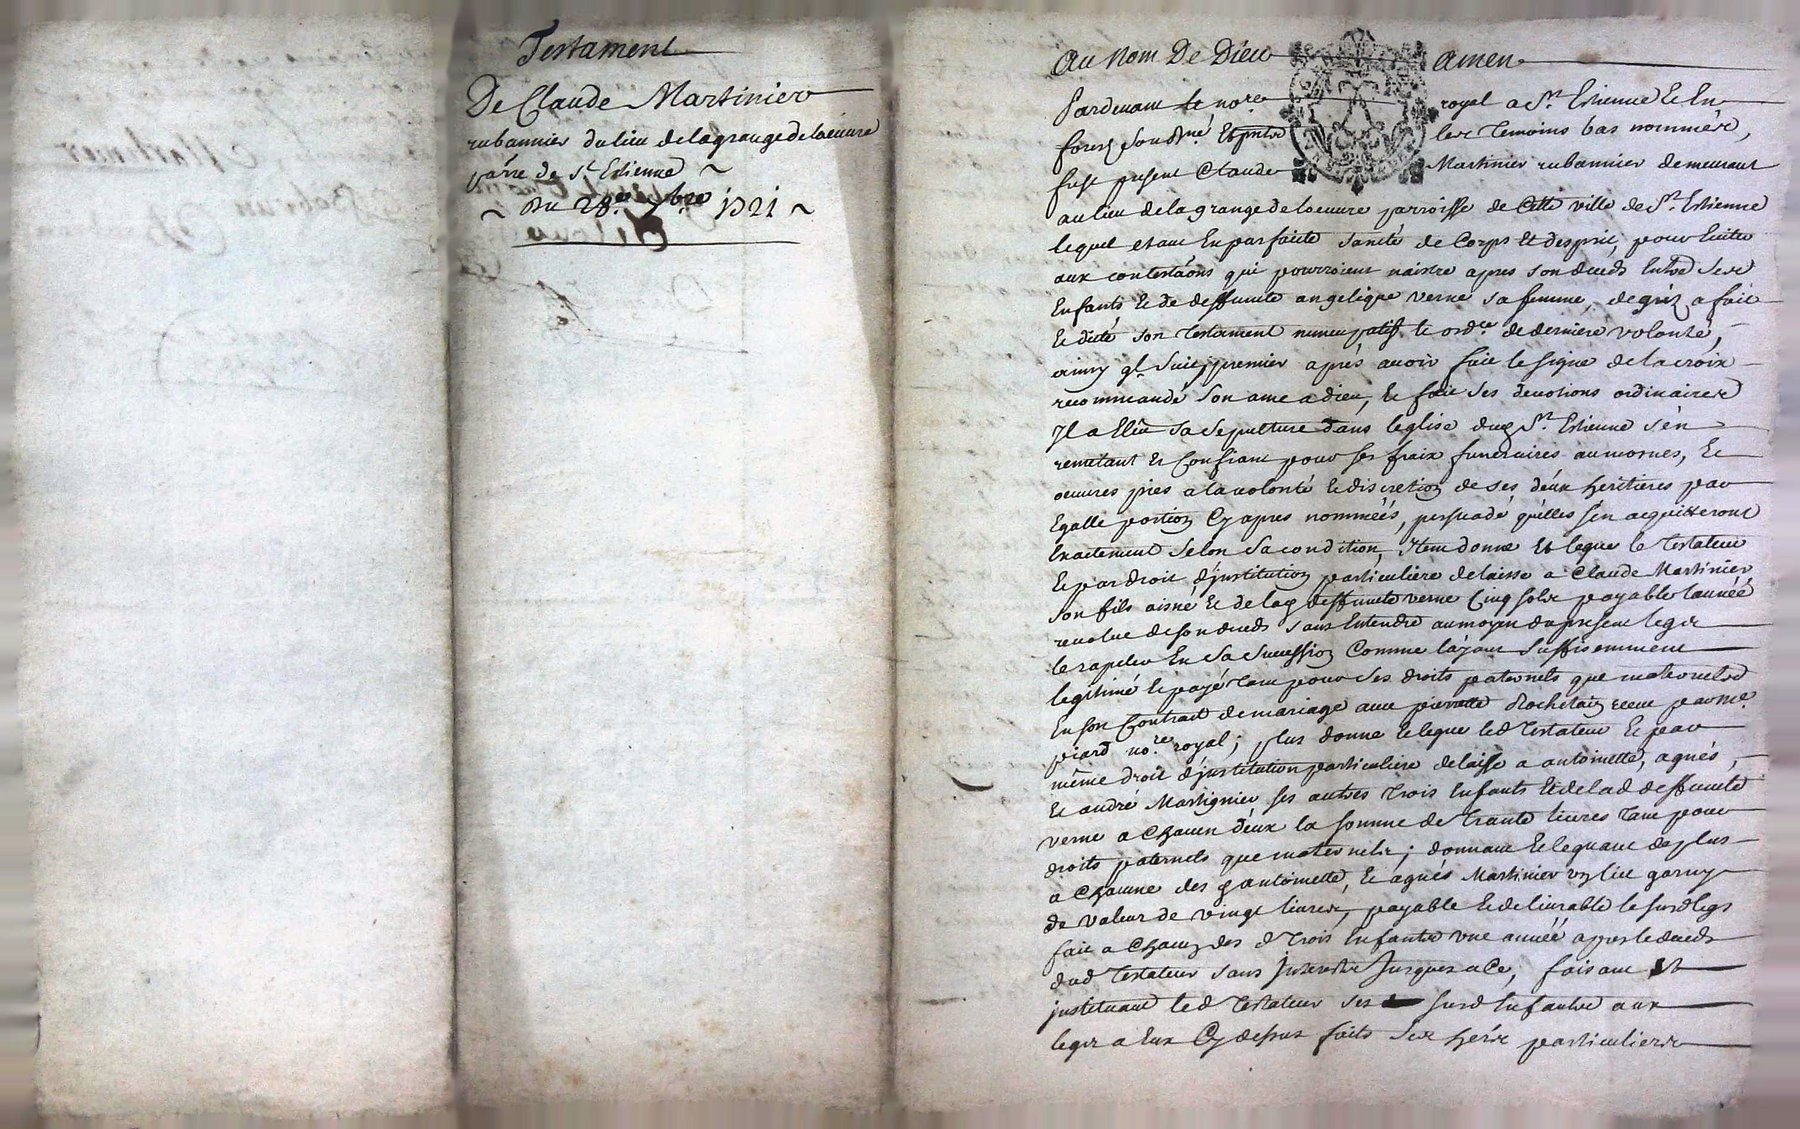 Testament
De Claude Martinier
rubannier du lieu de la grange de loeuvre
parre de St Estienne
Du 28e 7bre 1721
Au Nom De Dieu amen
Pardevant le nore royal a St Estienne Et En
forez soubné Et prnts les Temoins bas nommés,
fust present Claude Martinier rubannier demeurant
au lieu de la grange de loeuvre parroisse de Cette ville de St Estienne
lequel estant En parfaite santé de Corps Et desprit, pour Eviter
aux contestaons qui pourroient naistre apres son deceds Entre ses
Enfants Et de deffunte angelique verne sa femme, de gréz a fait
Et dicté son Testament nuncupatif Et ordce de derniere volonté,
ainsy ql suit, premier aprés avoir fait le signe de la croix
recommandé son ame a dieu, Et fait ses devotions ordinaires
Jl a Elû sa sepulture dans leglise dud St Estienne s'en
remetant Et Confiant pour ses fraix funeraires aumosnes, Et
oeuvres pies a la volonté Et discretion de ses deux heritieres par
Egalle portion Cy apres nommées, persuadé quelles s'en acquitteront
Exactement selon sa condition, Item donne Et legue le Testateur
Et par droit d'justitution particuliere delaisse a Claude Martinier
son fils aisné Et de lad deffunte verne Cinq sols payable lannéé
revolue de son deceds sans Entendre au moyen du present legs
le rapeler En sa succession Comme layant suffisemment
legitimé Et payé Tant pour ses droits paternels que maternels
En son Contract de mariage avec pierrette Rochetain receu par me
piard nore royal; plus donne Et legue led Testateur Et par
même droit d'justitution particuliere delaisse a antoinette, agnés,
Et andré Martignier ses autres Trois Enfants Et de lad deffunte
verne a Chacun deux la somme de Trante livres Tant pour
droits paternels que maternels; donnant Et leguant de plus
a Chacune des d antoinette, Et agnés Martinier un lit garny
de valeur de vingt livres, payable Et delivrable le susd legs
fait a Chacun des d Trois Enfants une année apres le deceds
dud Testateur sans Interests Jusques a Ce, faisant Et
justituant led Testateur ses susd Enfants aux
legs a Eux Cy dessus faits ses hérs particuliers